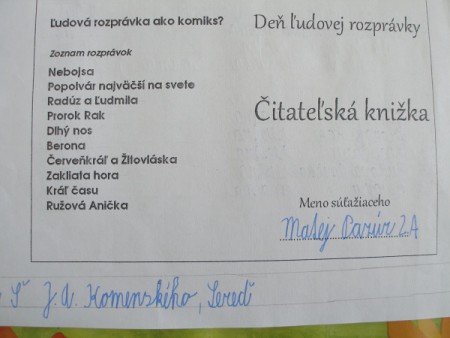 Ľudová rozprávka ako komiks?
Zoznam rozprávok
Nebojsa
Popolvár najväčší na svete
Radúz a Ľudmila
Prorok Rak
Dlhý nos
Berona
Červenkráľ a Žltovláska
Zakliata hora
Kráľ času
Ružová Anička
Deň ľudovej rozprávky
Čitateľská knižka
Meno súťažiaceho
Matej 2A
J. A. Komenského, Sereď